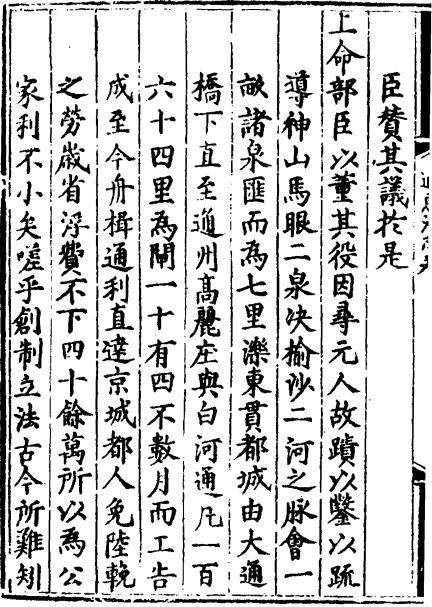 臣賛其議於是
上命部臣以董其役因尋元人故蹟以鑿以疏
導神山馬眼二泉决榆沙二河之脉會一
畝諸泉匯而為七里濼東貫都城由大通
橋下直至通州髙麗庄與白河通凡一百
六十四里為閘一十有四不數月而工告
成至今舟楫通利直達京城都人免陸輓
之勞歳省浮費不下四十餘萬所以為公
家利不小矣嗟乎創制立法古今所難矧